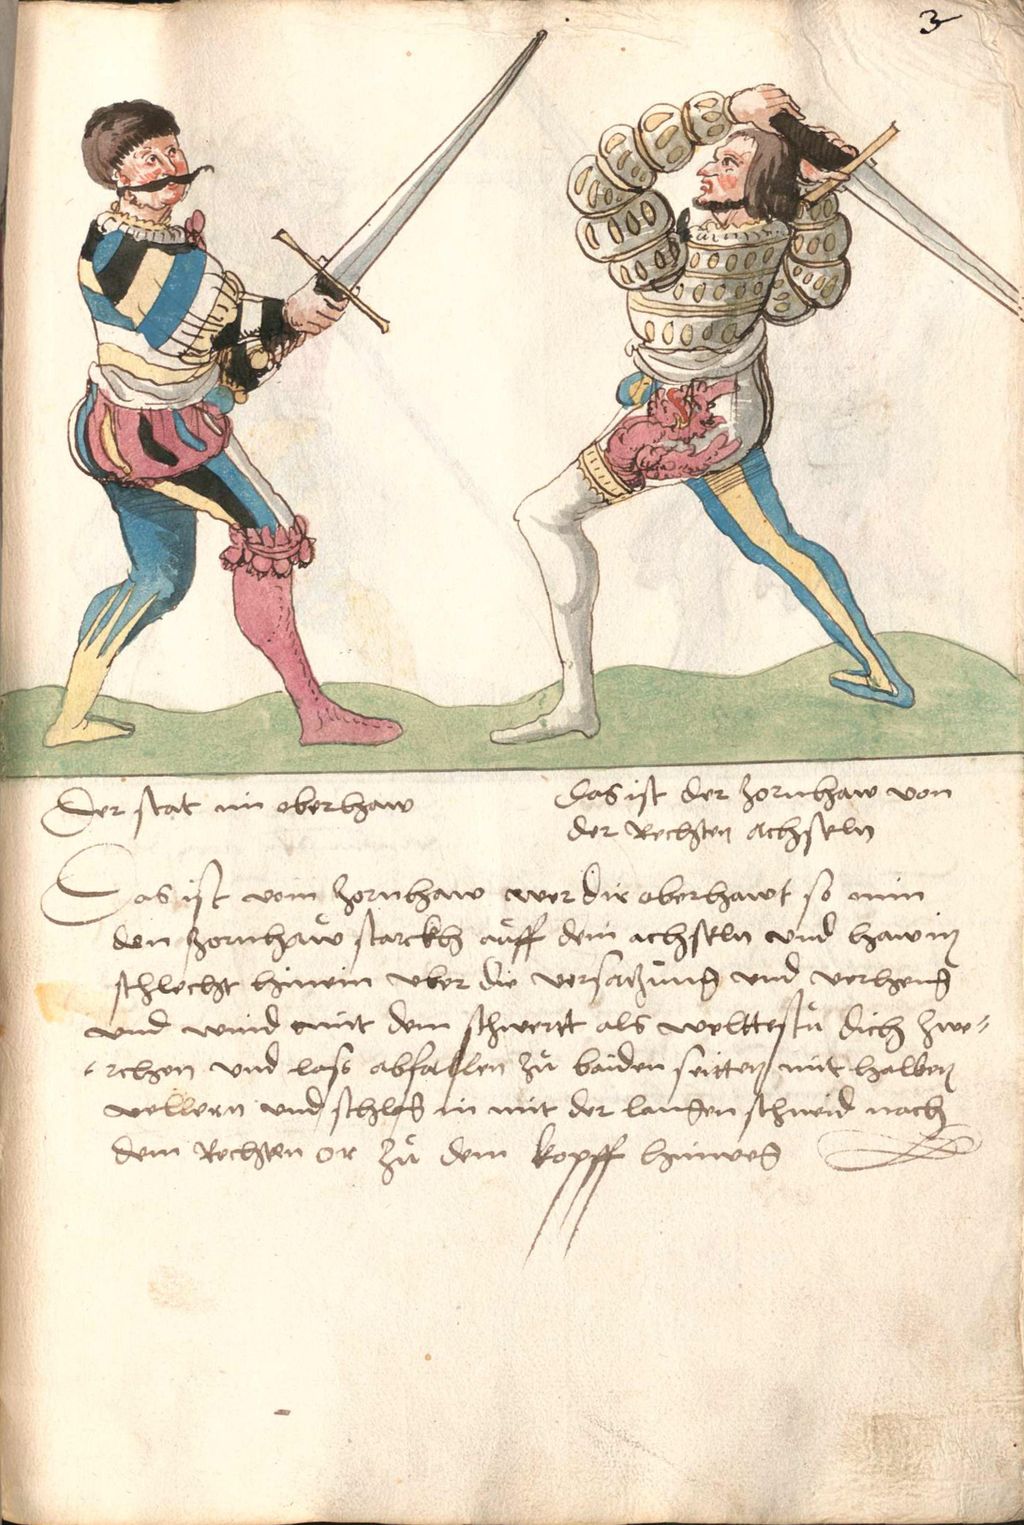 3
Der stat im oberhaw
Das ist der zornhaw von
der Rechsten achseln
Das ist vom zornhaw wer dir oberhawt so nim
den zornhaw starckh auff dein achseln und haw in
schlecht hinein uber die versatzung und verheng
und wind mit dem schwertt als welttestu dich zwe-
-rchen und lass abfallen zu baiden seitten mit halben
vellern und schlag in mit der langen schneid nach
dem Rechsten or zu dem kopff hinweg